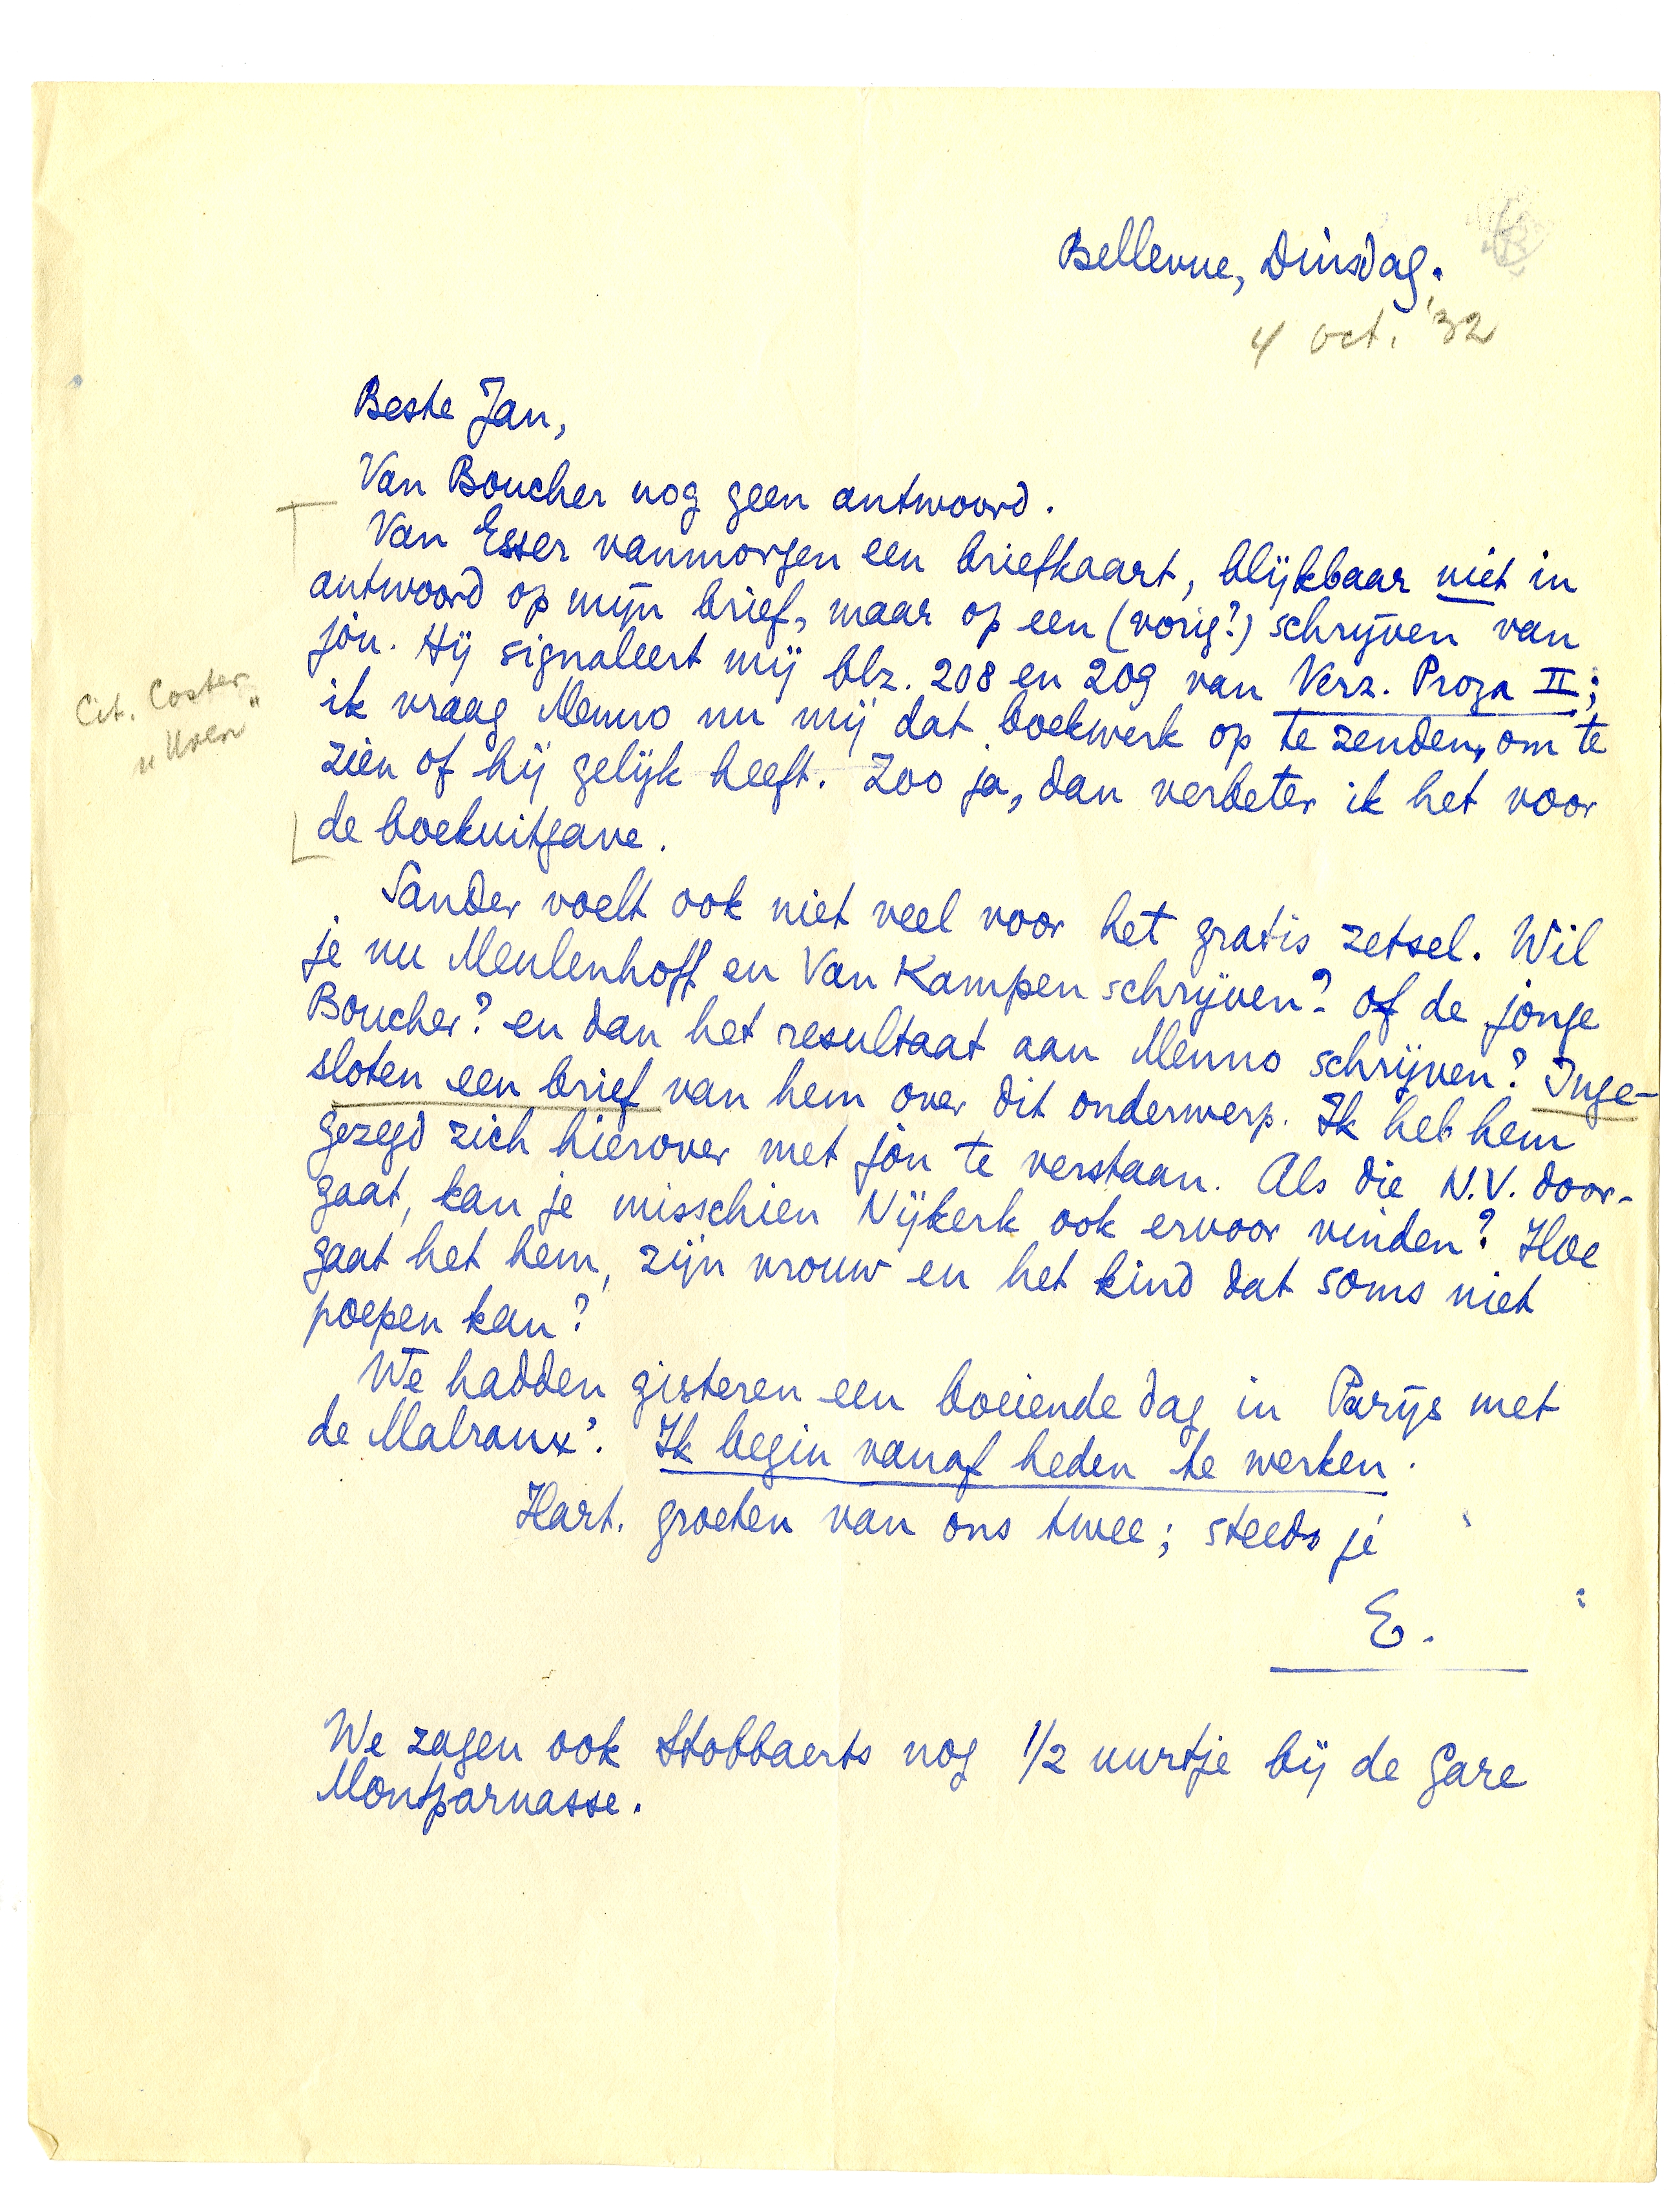 Bellevue, Dinsdag.
4 oct. '32
Beste Jan,
Van Boucher nog geen antwoord.
Van Esser vanmorgen een briefkaart, blijkbaar niet in
antwoord op mijn brief, maar op een (vorig?) schrijven van
jòu. Hij signaleert mij blz. 208 en 209 van Verz. Proza II;
Cit. Coster
ik vraag Menno nu mij dat boekwerk op te zenden, om te
zien of hij gelijk heeft. Zoo ja, dan verbeter ik het voor
de boekuitgave.
Sander voelt ook niet veel voor het gratis zetsel. Wil
je nu Meulenhoff en Van Kampen schrijven? of de jonge
Boucher? en dan het resultaat aan Menno schrijven? Inge-
sloten een brief van hem over dit onderwerp. Ik heb hem
gezegd zich hierover met jòu te verstaan. Als die N.V. door-
gaat, kan je misschien Nijkerk ook ervoor vinden? Hoe
gaat het hem, zijn vrouw en het kind dat soms niet
poepen kan?
We hadden gisteren een boeiende dag in Parijs met
de Malraux'. Ik begin vanaf heden te werken.
Hart. groeten van ons twee; steeds je
E.
We zagen ook Stobbaerts nog 1/2 uurtje bij de Gare
Montparnasse.